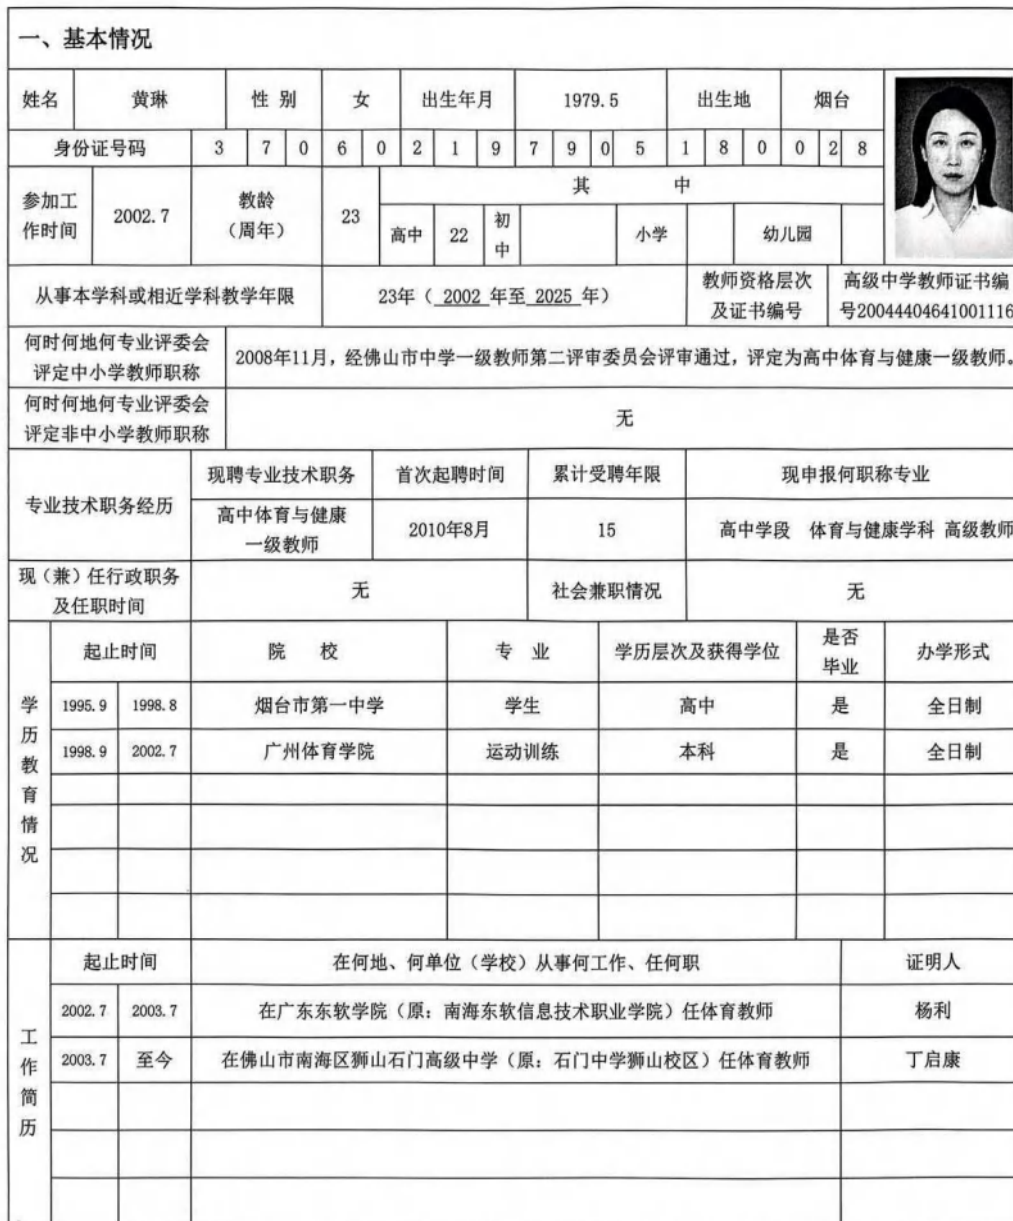 一、基本情况
姓名 黄琳 性 别 女 出生年月 1979.5 出生地 烟台
身份证号码 3 7 0 6 0 2 1 9 7 9 0 5 1 8 0 0 2 8
参加工作时间 2002.7 教龄（周年） 23 其 中
高中 22 初中 小学 幼儿园
从事本学科或相近学科教学年限 23年（ 2002 年至 2025 年） 教师资格层次及证书编号 高级中学教师证书编号20044404641001116
何时何地何专业评委会
评定中小学教师职称 2008年11月，经佛山市中学一级教师第二评审委员会评审通过，评定为高中体育与健康一级教师。
何时何地何专业评委会
评定非中小学教师职称 无
专业技术职务经历 现聘专业技术职务 首次起聘时间 累计受聘年限 现申报何职称专业
高中体育与健康一级教师 2010年8月 15 高中学段 体育与健康学科 高级教师
现（兼）任行政职务
及任职时间 无 社会兼职情况 无
学历教育情况 起止时间 院 校 专 业 学历层次及获得学位 是否毕业 办学形式
1995.9 1998.8 烟台市第一中学 学生 高中 是 全日制
1998.9 2002.7 广州体育学院 运动训练 本科 是 全日制
工作简历 起止时间 在何地、何单位（学校）从事何工作、任何职 证明人
2002.7 2003.7 在广东东软学院（原：南海东软信息技术职业学院）任体育教师 杨利
2003.7 至今 在佛山市南海区狮山石门高级中学（原：石门中学狮山校区）任体育教师 丁启康